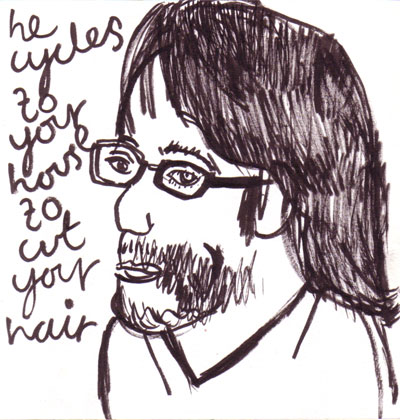 he
cycles
to
your
house
to
cut
your
hair